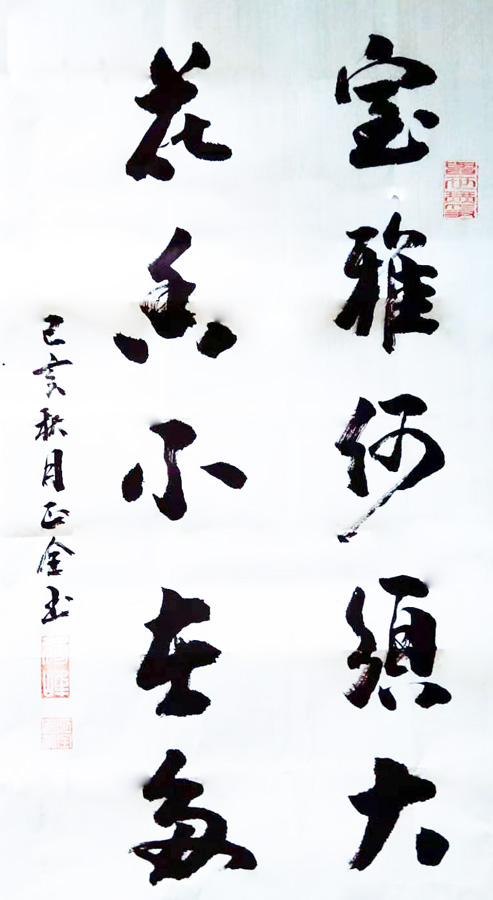 室雅何須大
花香不在多
己亥秋月正金书